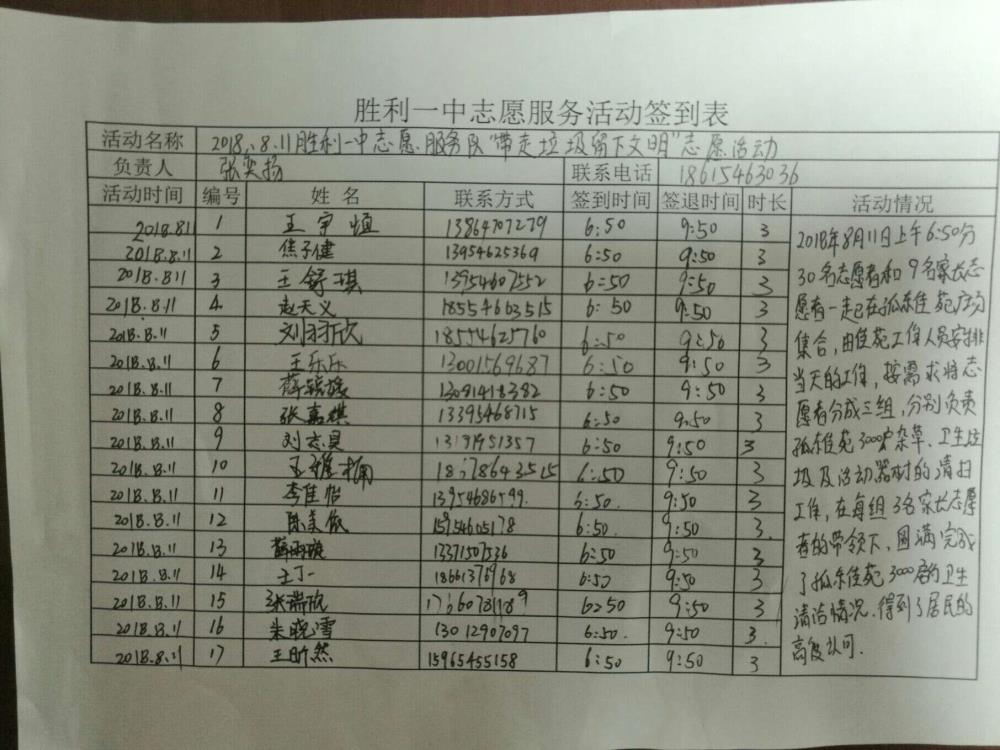 胜利一中志愿服务活动签到表
活动名称 2018.8.11胜利一中志愿服务队"带走垃圾留下文明"志愿活动
负责人 张奕扬 联系电话 18615463036
活动时间 编号 姓名 联系方式 签到时间 签退时间 时长 活动情况
2018.811 1 王宇恒 13864707279 6:50 9:50 3
2018.8.11 2 焦子健 13954625369 6:50 9:50 3
2018.8.11 3 王舒琪 13954607552 6:50 9:50 3
2018.8.11 4 赵天义 18554603515 6:50 9:50 3
2018.8.11 5 刘羽欣 18554625760 6:50 9:50 3
2018.8.11 6 王乐乐 13001569687 6:50 9:50 3
2018.8.11 7 6:50 9:50 3
2018.8.11 8 张嘉祺 13395468715 6:50 9:50 3
2018.8.11 9 刘志昊 6:50 9:50 3
2018.8.11 10 6:50 9:50 3
2018.8.11 11 李佳怡 13954686599. 6:50. 9:50 3
2018.8.11 12 陈美依 15954605178 6:50. 9:50 3.
2018.8.11 13 13371507536 6:50 9:50 3
2018.8.11 14 王丁一 18661376968 6:50 9:50 3
2018.8.11 15 张瑞欣 6:50 9:50 3
2018.8.11 16 朱晓雪 13012907097 6:50. 9:50 3.
2018.8.11 17 王昕然 15965455158 6:50 9:50 3
2018年8月11日上午6:50分
30名志愿者和9名家长志
愿者一起在孤东佳苑广场
集合,由佳苑工作人员安排
当天的工作,按需求将志
愿者分成三组,分别负责
孤东佳苑3000户杂草、卫生垃
圾及活动器材的清扫
工作,在每组3名家长志愿
者的带领下,圆满完成
了孤东佳苑3000户的卫生
清洁情况.得到了居民的
高度认可.